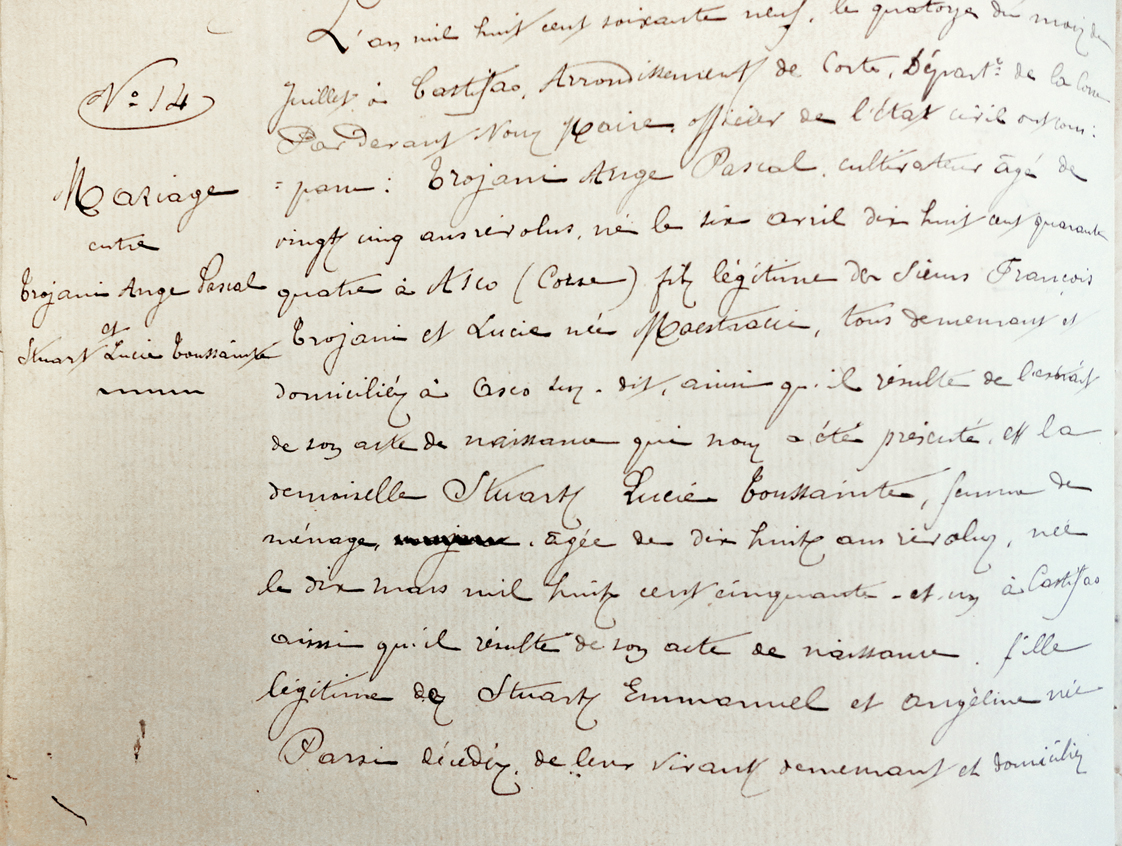 N° 14
Mariage
entre
Trojani Ange Pascal
et
Stuart Lucie Toussainte
L'an mil huit cent soixante neuf, le quatorze du mois de
Juillet à Castifao, Arrondissement de Corte, Départt de la Corse
Par Devant Nous Maire, officier de l'état civil ont com:
= paru : Trojani Ange Pascal, cultivateur âgé de
vingt cinq ans révolus, né le six avril dix huit cent quarante
quatre à Asco (Corse) fils légitime des Sieurs François
Trojani et Lucie née Maestracci, tous demeurant et
domiciliés à Asco sus-dit, ainsi qu'il résulte de l'extrait
de son acte de naissance qui nous a été présenté, et la
demoiselle Stuart Lucie Toussainte, femme de
ménage, âgée de dix huit ans révolus, née
le dix mars mil huit cent cinquante-et-un à Castifao
ainsi qu'il résulte de son acte de naissance, fille
légitime de Stuart Emmanuel et Angéline née
Parsi décédés, de leur vivant demeurant et domiciliés